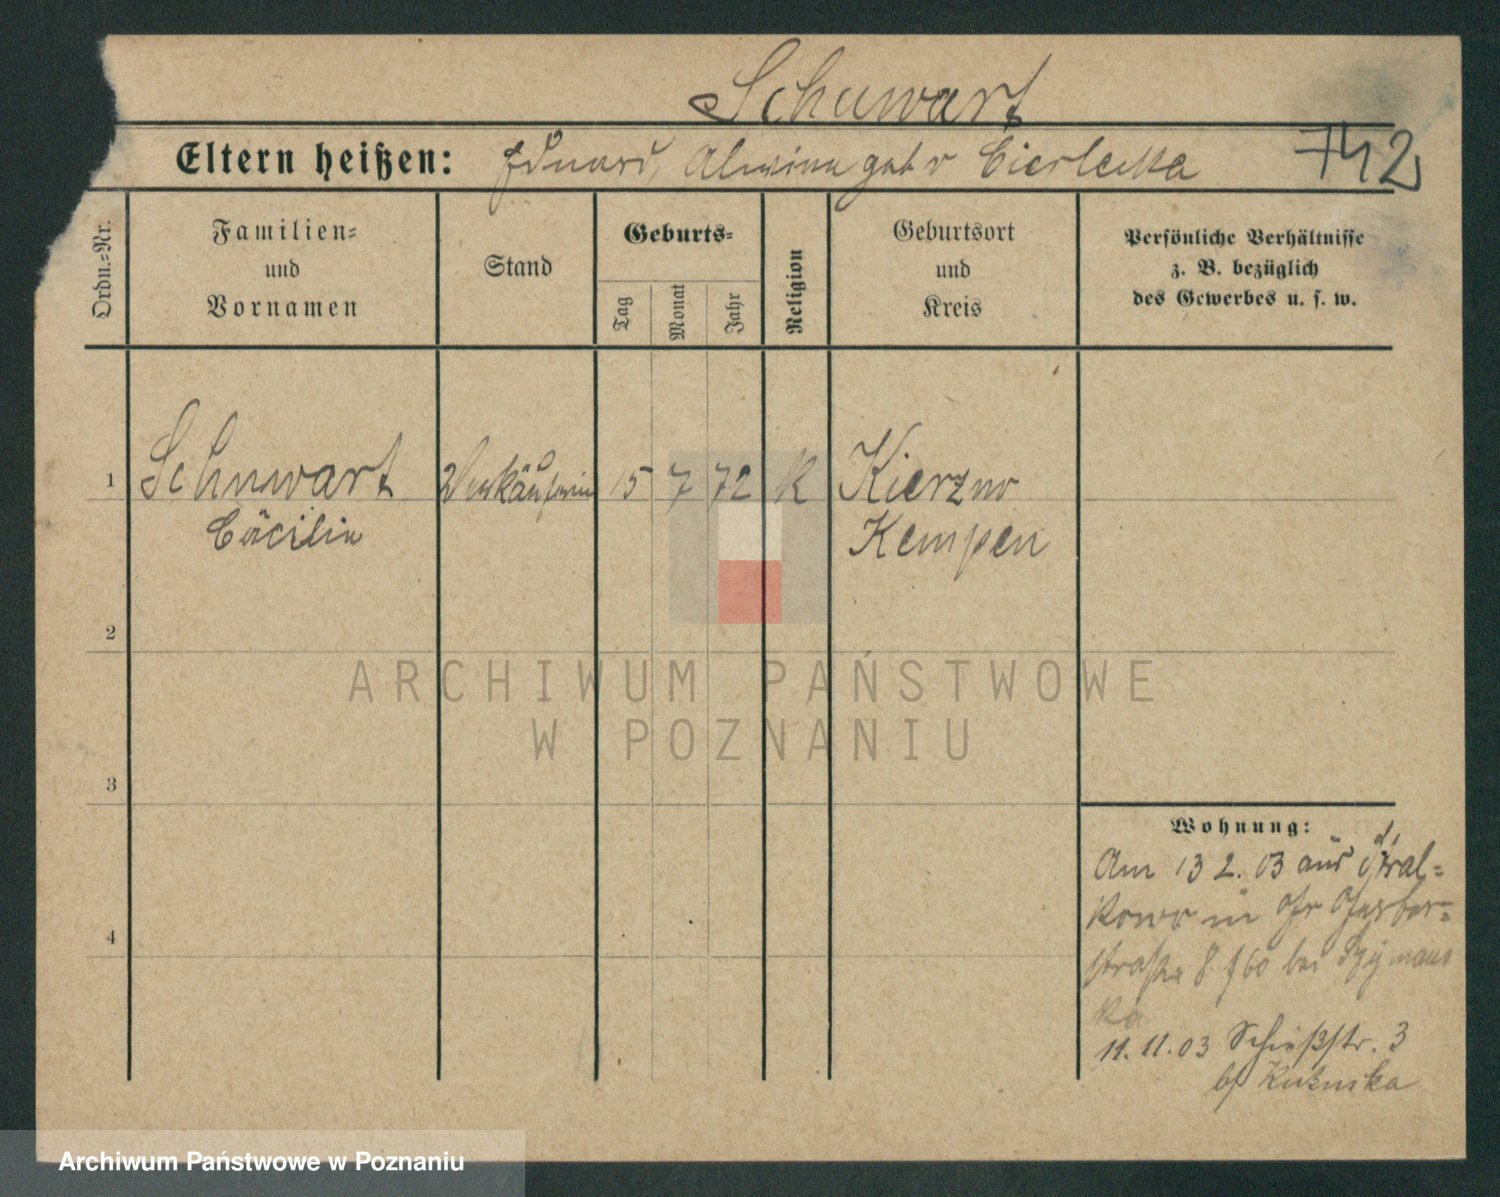 Schuwart
Eltern heißen: Eduard, Alwina geb v Cierlecka 742
Ordn.-Nr.
Familien- und Vornamen
Stand
Geburts-
Tag
Monat
Jahr
Religion
Geburtsort und Kreis
Persönliche Verhältnisse z. B. bezüglich des Gewerbes u. s. w.
1 Schuwart Verkäuferin 15 7 72 K Kierzno
Cäcilie Kempen
2
ARCHIWUM PAŃSTWOWE
W POZNANIU
3
Wohnung:
Am 13 2. 03 aus Stral-
kowo in Gr Gerber-
straße 8 bei Szymans
ka
11. 11. 03 Schießstr. 3
b/
4
Archiwum Państwowe w Poznaniu